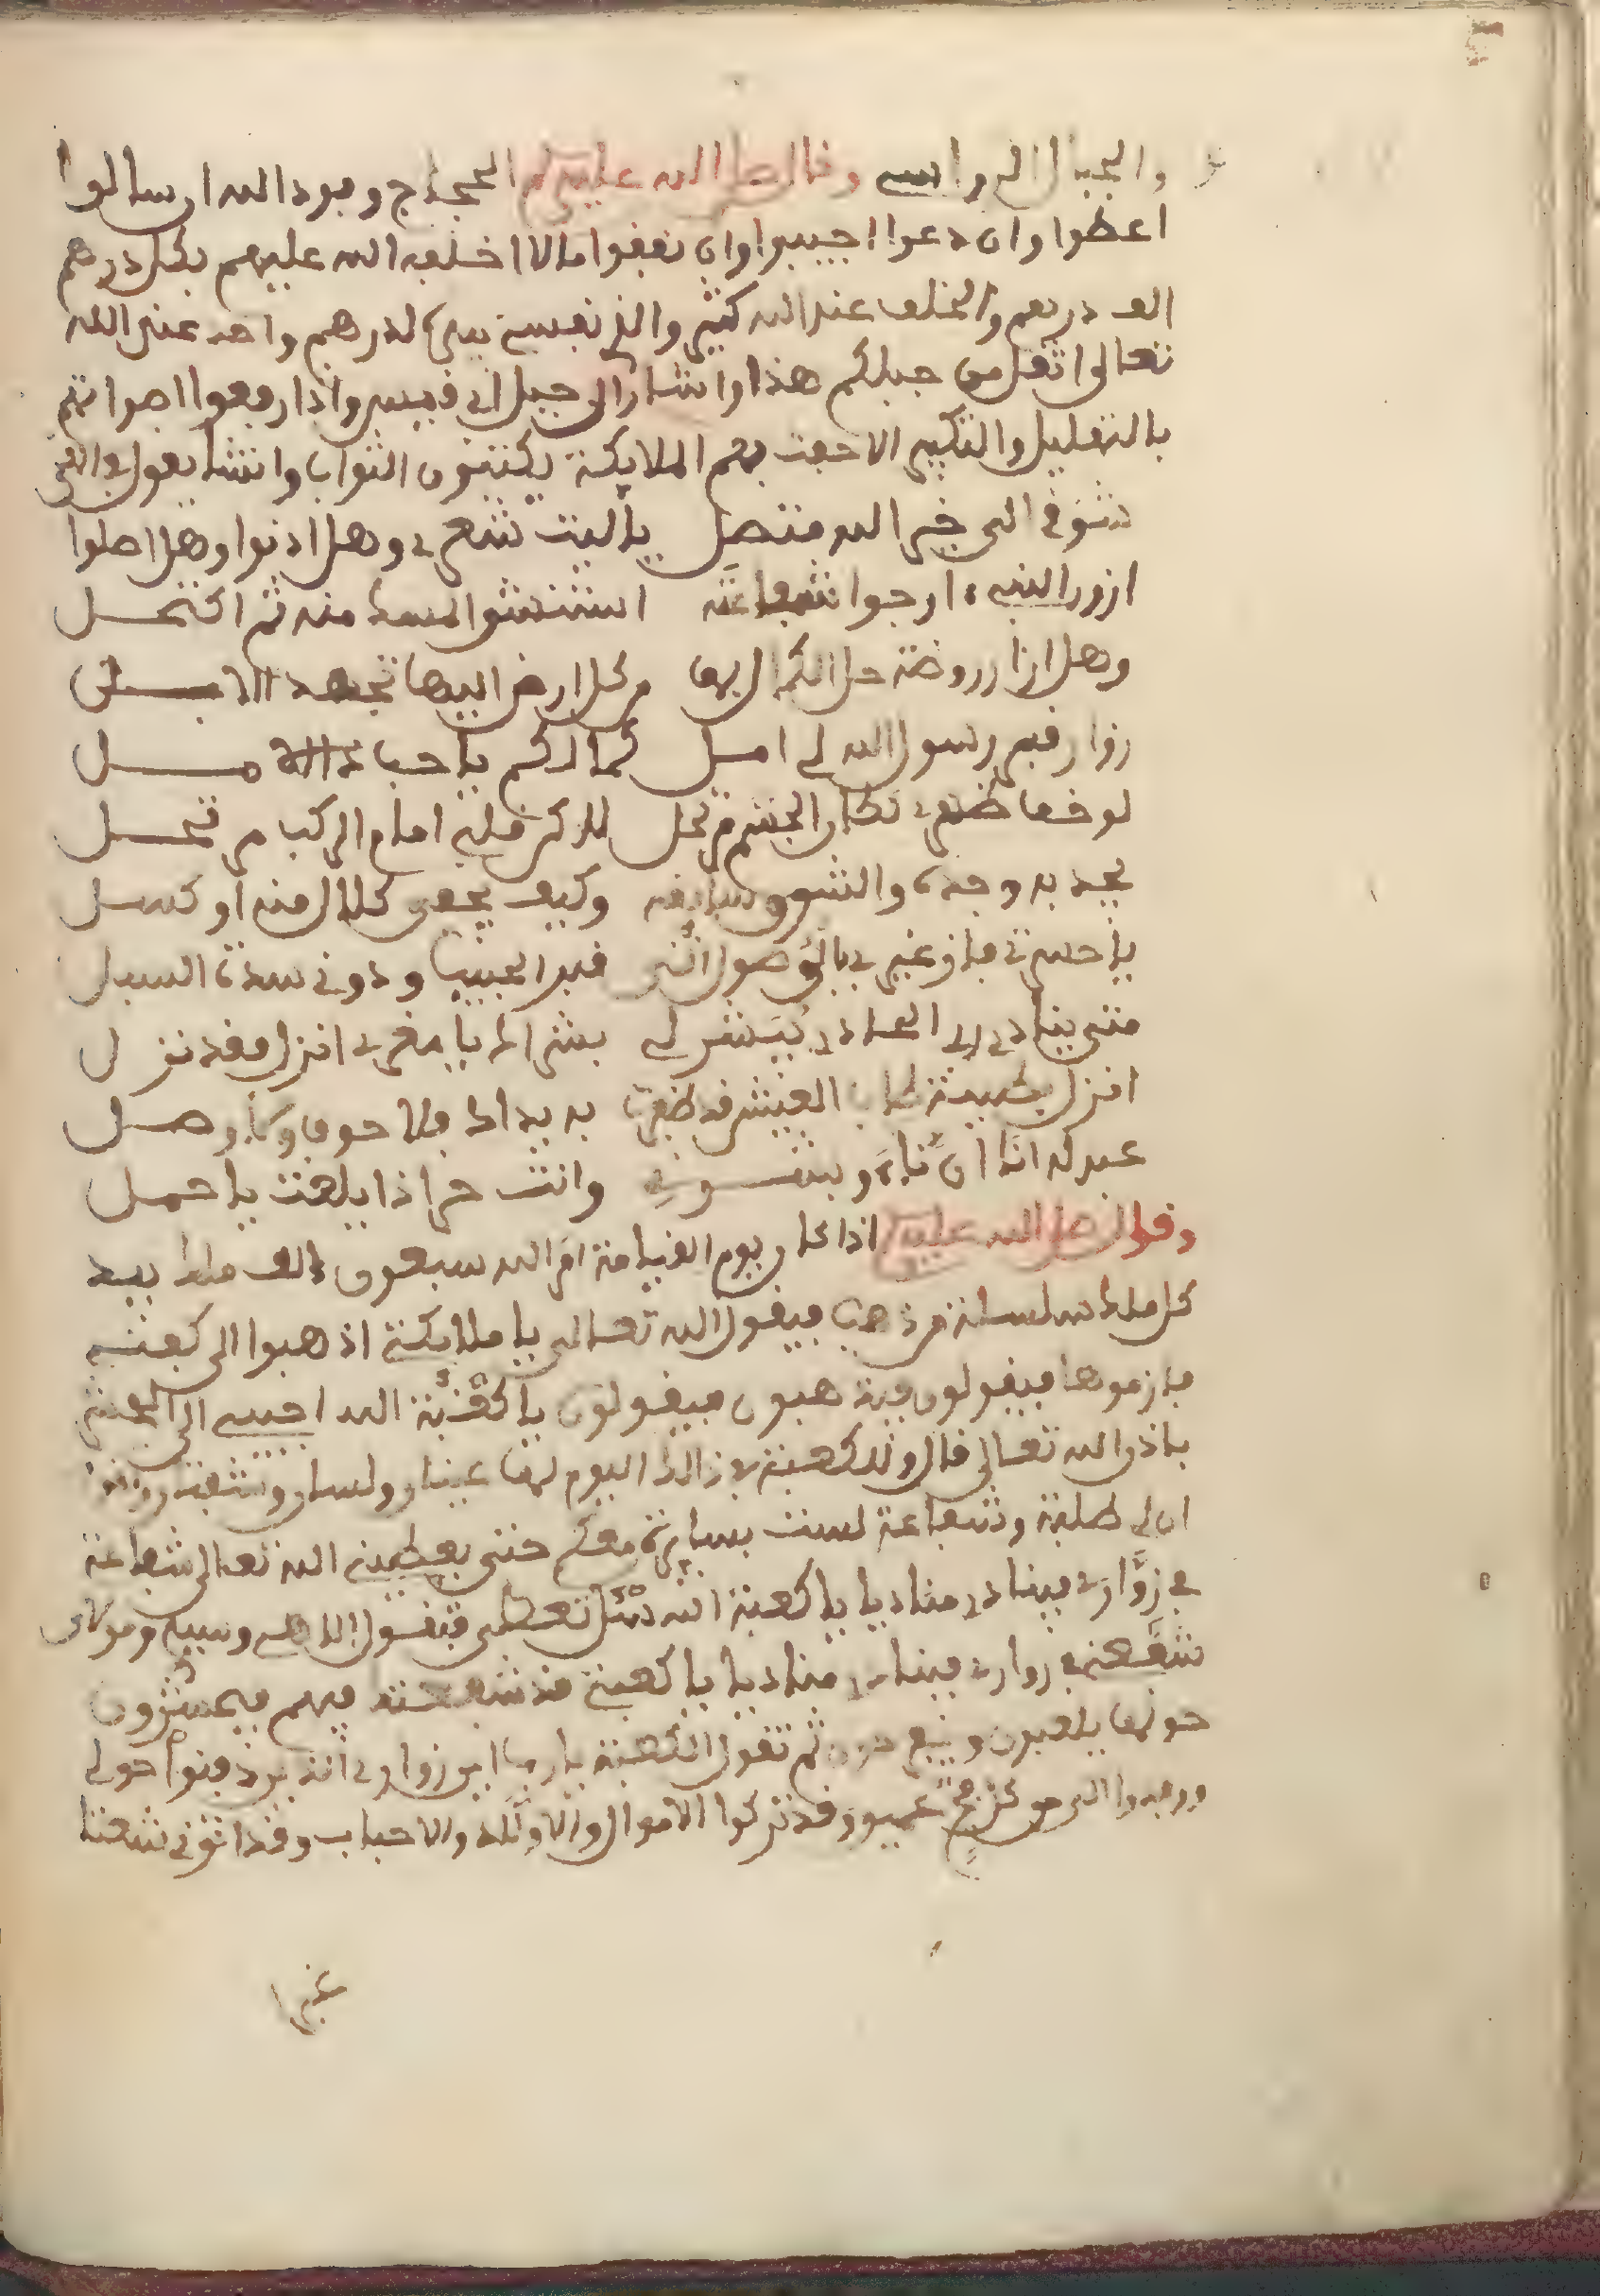 والجبال الرواسي وقال صلى الله عليه وسلم الحجاج وبود الله ان سالوا
اعطوا وان دعوا اجيبوا وان نفقوا مالا اخلفه الله عليهم بكل درهم
الف درهم والخلف عند الله كثير والذي نفسي بيده لدرهم واحد عند الله
تعالى اثقل من جبلكم هذا واشار الى جبل ابي قبيس واذا رفعوا اصواتهم
بالتهليل والتكبير الا حفت بهم الملايكة يكتبون الثواب وانشا يقول
شوقي الى خير الله متصل ياليت شعري وهل ادنوا وهل اصلوا
ازور النبي ارجوا شفاعته استنشوا المسك منه ثم اكتحل
وهل ازار روضة حل الكمال بها من كل ارض اليها تجهد الابل
زوار قبر رسول الله لي امل كما لكم يا حباذ الامل
لو خف ظهري لكان الجسم مرتحل لاكن قلبي امام الركب مرتحل
يجد به وجده والشوق سايقه وكيف يخفى كلال منه او كسل
يا حسرتي فاز غيري بالوصول الى قبر الحبيب ودوني سدة السبل
متى ينادي بي الحادي يبشرني بشراك يا مغربي انزل فقد نزل
انزل بطيبة طاب العيش قد ظفرت به يداك فلا خوف ولا وصل
عبد له انا ان ناء وبشرني وانت حر اذا بلغت يا جمل
وقال صلى الله عليه وسلم اذا كان يوم القيامة امر الله سبعون الف ملك بيد
كل ملك سلسلة من ذهب فيقول الله تعالى يا ملايكتي اذهبوا الى كعبتي
فازموها فيقولون فيذهبون فيقولون يا كعبة الله اجيبي الى المحشر
باذن الله تعالى قال وللكعبة يوم ذالك اليوم لها عينان ولسان وشفتان
ان لي طلبة وشفاعة لست بسايرة معكم حتى يعطيني الله تعالى شفاعة
في زواري فينادي مناديا يا كعبة الله سل تعطى فتقول الاهي وسيدي ومولاي
شفعني في زواري فينادي مناديا يا كعبة قد شفعتك فيهم فيحشرون
حولها يلعبون ثم تقول الكعبة يا رب اين زواري الذين دفنوا حولي
ووفدوا الي من كل فج عميق وقد تركوا الاموال والاولاد والاحباب وقد اتوني شعثا
غبرا